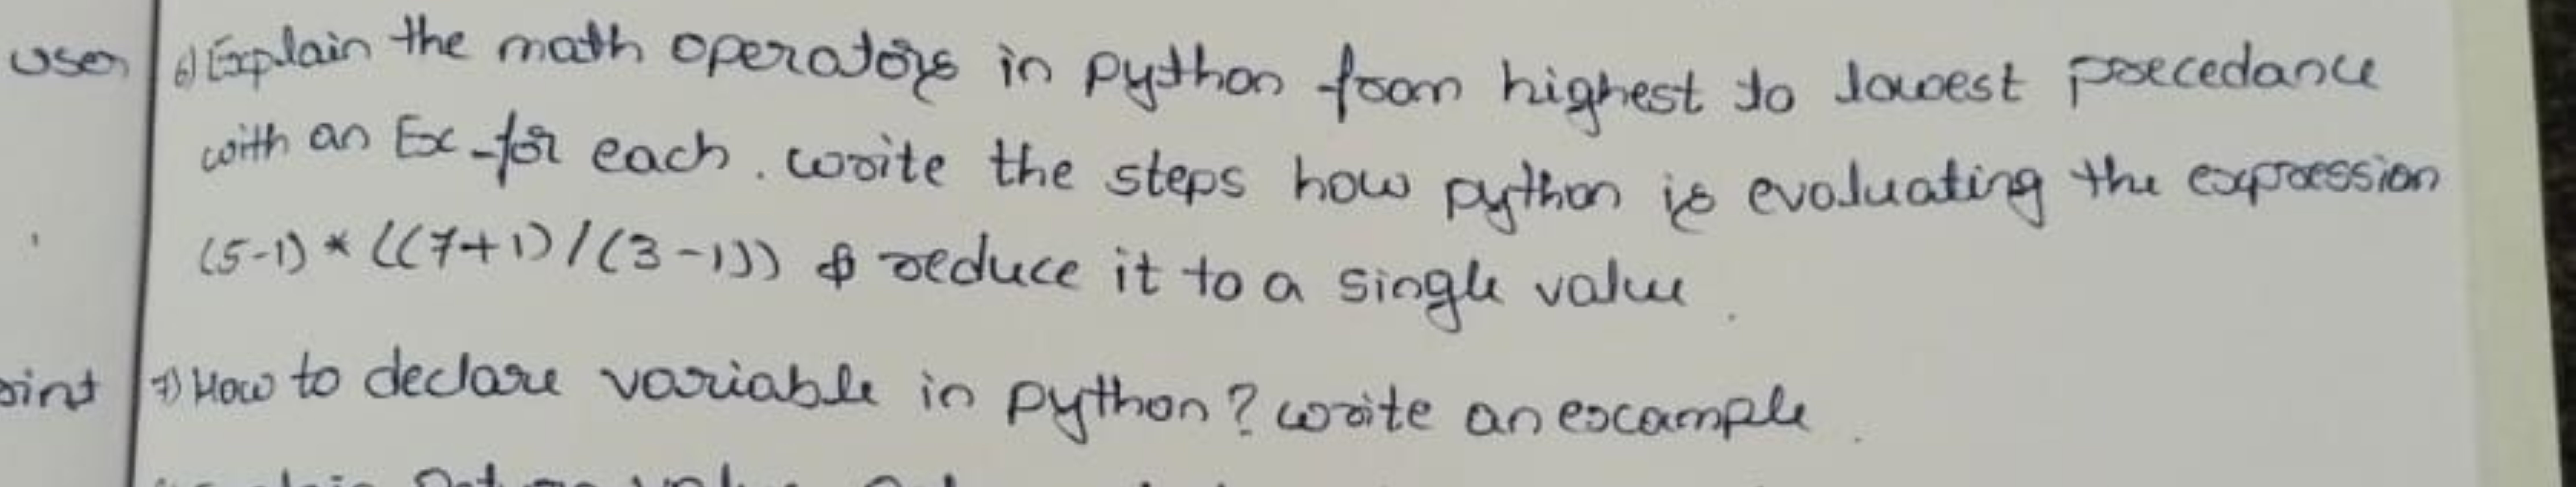 user
6) Explain the math operators in python from highest to lowest precedance
with an Ex for each. write the steps how python is evaluating the expression
(5-1) * ((7+1) / (3-1)) & reduce it to a single value.
7) How to declare variable in python? write an example.